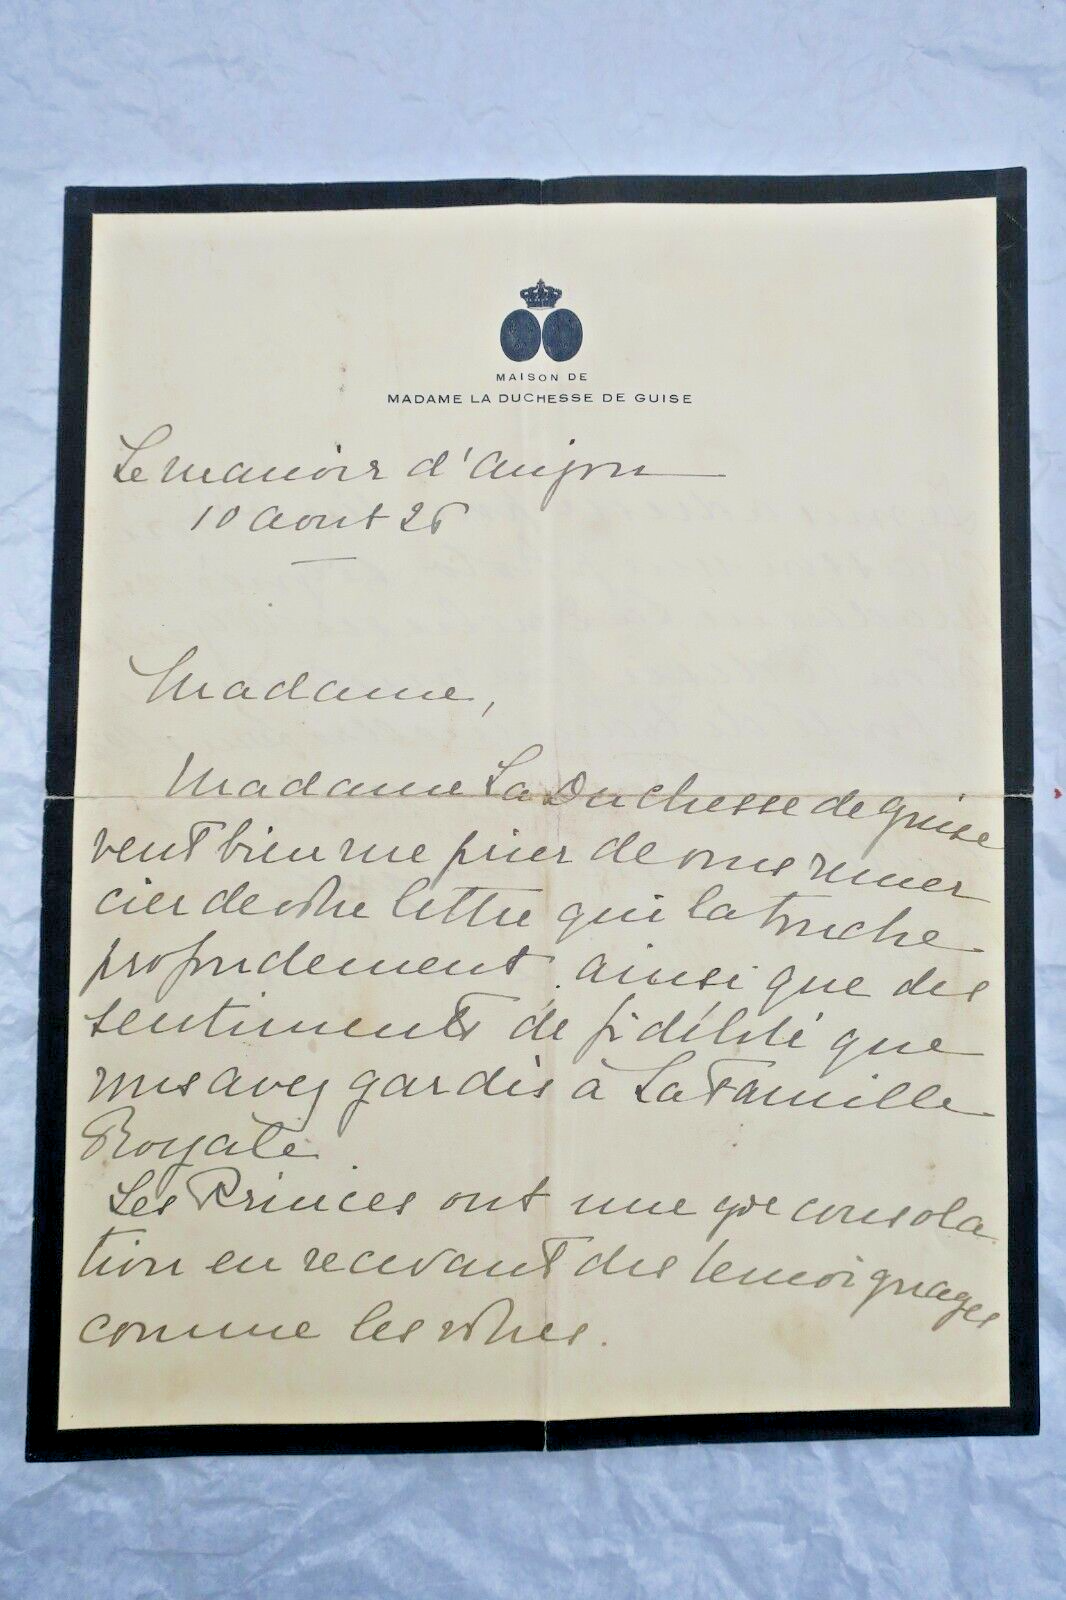 MAISON DE
MADAME LA DUCHESSE DE GUISE
Le Manoir d'Anjou
10 Aout 26
Madame,
Madame La Duchesse de Guise
veut bien me prier de vous remer
cier de votre lettre qui la touche
profondement, ainsi que des
sentiments de fidélité que
vous avez gardés à La Famille
Royale.
Les Princes ont une gde consola
tion en recevant des temoignages
comme les votres.